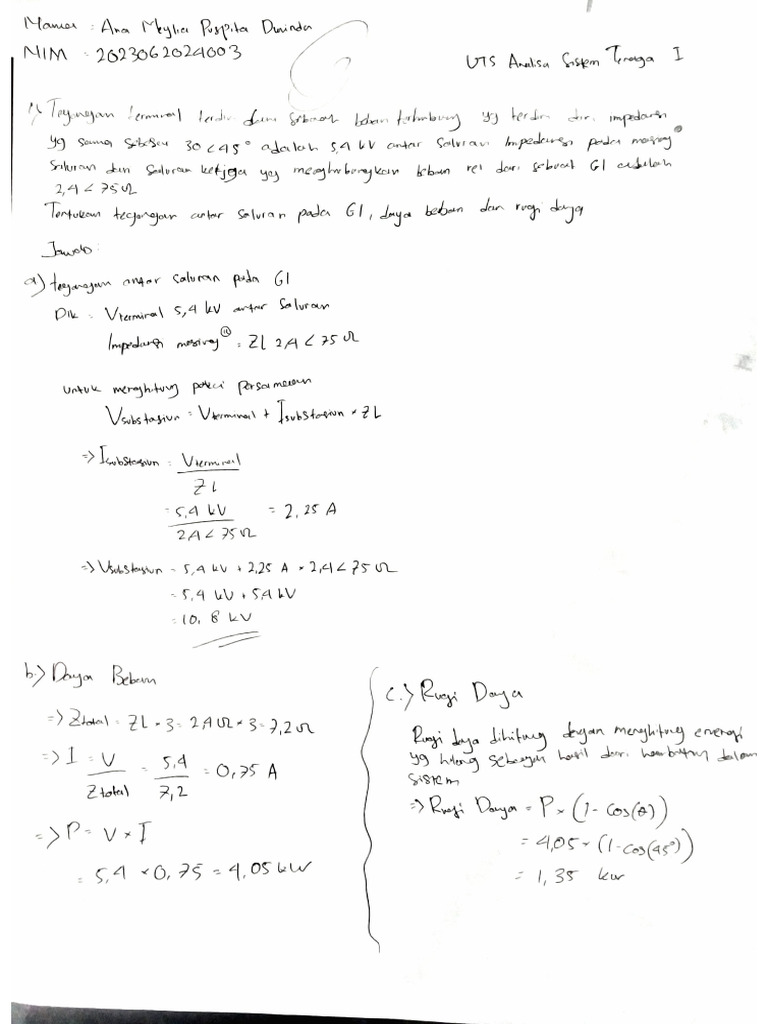 Nama : Ana Meylia Puspita Dwinda
NIM : 2023062024003
UTS Analisa Sistem Tenaga I
1) Tegangan terminal terdiri dari sebuah beban terhubung yg terdiri dari impedansi
yg sama sebesar 30 < 45° adalah 5,4 kV antar saluran. Impedansi pada masing²
saluran dan saluran ketiga yg menghubungkan beban rel dari sebuah GI adalah
2,4 < 75 Ω
Tentukan tegangan antar saluran pada GI, daya beban dan rugi daya
Jawab :
a) tegangan antar saluran pada GI
Dik : Vterminal 5,4 kV antar saluran
Impedansi masing² : ZL 2,4 < 75 Ω
untuk menghitung pakai persamaan
Vsubstasiun = Vterminal + Isubstasiun × ZL
=> Isubstasiun = Vterminal
ZL
= 5,4 kV = 2,25 A
2,4 < 75 Ω
=> Vsubstasiun = 5,4 kV + 2,25 A × 2,4 < 75 Ω
= 5,4 kV + 5,4 kV
= 10,8 kV
b.) Daya Beban
=> Ztotal = ZL × 3 = 2,4 Ω × 3 = 7,2 Ω
=> I = V = 5,4 = 0,75 A
Ztotal 7,2
=> P = V × I
= 5,4 × 0,75 = 4,05 kW
c.) Rugi Daya
Rugi daya dihitung dengan menghitung energi
yg hilang sebagai hasil dari hambatan dalam
sistem
=> Rugi Daya = P × (1 - cos(θ))
= 4,05 × (1 - cos(45°))
= 1,35 kw